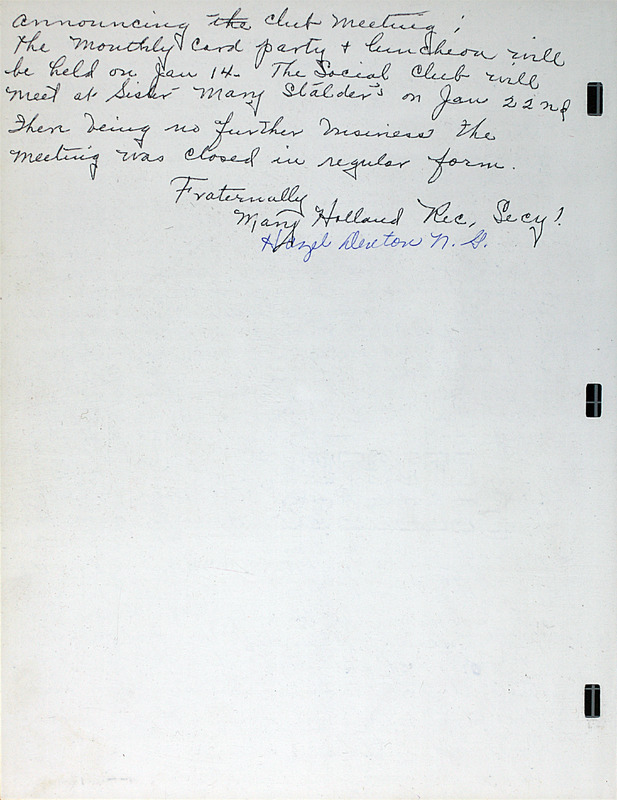 announcing the club meeting!
The monthly card party + luncheon will
be held on Jan 14. The Social Club will
meet at Sister Mary Stalder's on Jan 22nd
There being no further business the
meeting was closed in regular form.
Fraternally
Mary Holland Rec, Secy!
Hazel Denton N. G.